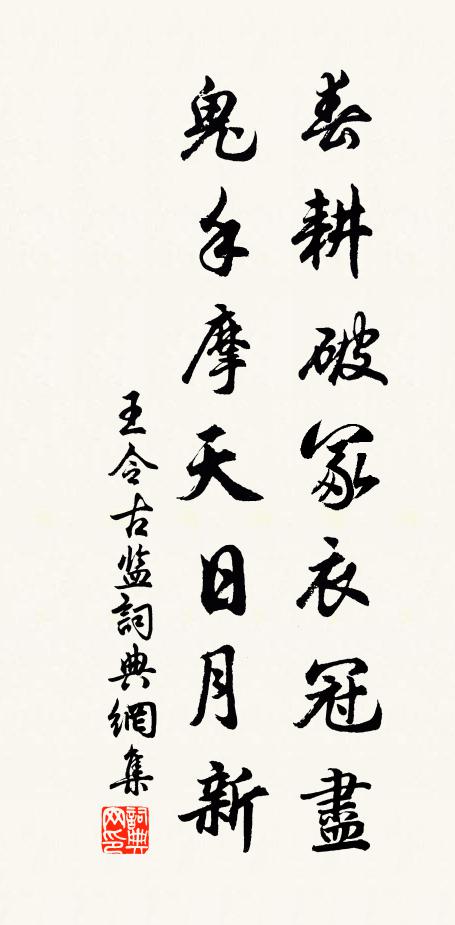 春耕破冢衣冠盡
鬼手摩天日月新
王令古监詞典網集
詞典網印